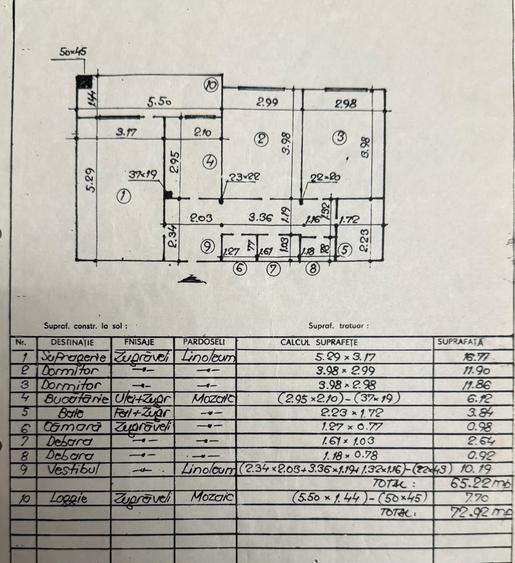 50×45
10
1.44
5.50
2.99
2.98
3.17
2.10
2
3
3.98
3.98
2.95
4
5.29
37×19
23×22
22×20
1
2.03
3.36
1.19
1.16
1.32
1.72
2.34
9
1.27
77
1.61
1.03
1.18
5
2.23
6
7
8
Supraf. constr. la sol :
Supraf. trotuar :
Nr. DESTINAȚIE FNISAJE PARDOSELI CALCUL SUPRAFEȚE SUPRAFAȚĂ
1 Sufragerie Zugrăveli Linoleum 5.29 × 3.17 16.77
2 Dormitor —〃— —〃— 3.98 × 2.99 11.90
3 Dormitor —〃— —〃— 3.98 × 2.98 11.86
4 Bucătărie Ulei+Zugr Mozaic (2.95×2.10)-(37×19) 6.12
5 Baie Fai+Zugr —〃— 2.23 × 1.72 3.84
6 Cămară Zugrăveli —〃— 1.27 × 0.77 0.98
7 Debara —〃— —〃— 1.61 × 1.03 2.64
8 Debara —〃— —〃— 1.18 × 0.78 0.92
9 Vestibul —〃— Linoleum (2.34×2.03+3.36×1.19+1.32×1.16)-(22×43) 10.19
TOTAL : 65.22 mp
10 Loggie Zugrăveli Mozaic (5.50 × 1.44)-(50×45) 7.70
TOTAL: 72.92 mp